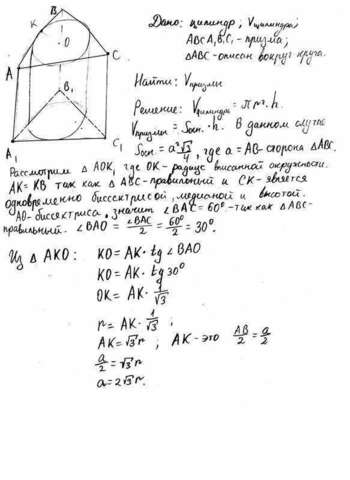 B
K
O
A
C
B₁
A₁
C₁
Дано: цилиндр; Vцилиндра;
ABCA₁B₁C₁ - призма;
ΔABC - описан вокруг круга.
Найти: Vпризмы
Решение: Vцилиндра = πr²·h.
Vпризмы = Sосн·h. В данном случае
Sосн. = a²√3/4, где a = AB - сторона ΔABC.
Рассмотрим ΔAOK, где OK - радиус вписанной окружности.
AK = KB так как ΔABC - правильный и CK - является
одновременно биссектрисой, медианой и высотой.
AO - биссектриса, значит ∠BAC = 60° - так как ΔABC -
правильный. ∠BAO = ∠BAC/2 = 60°/2 = 30°.
Из ΔAKO: KO = AK · tg ∠BAO
KO = AK · tg 30°
OK = AK · 1/√3
r = AK · 1/√3 ;
AK = √3 r ; AK - это AB/2 = a/2
a/2 = √3 r
a = 2√3 r.